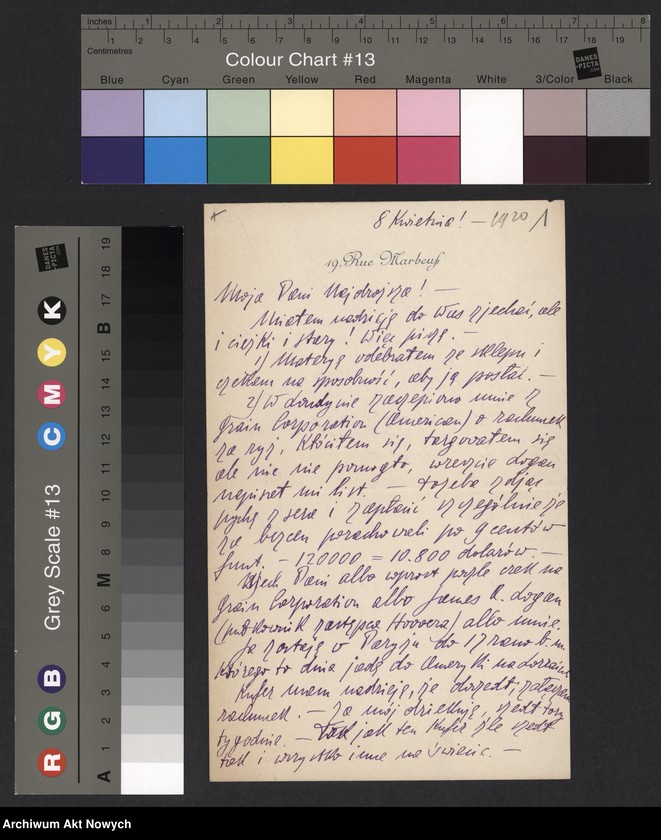 Inches 1 2 3 4 5 6 7 8
Centimetres 1 2 3 4 5 6 7 8 9 10 11 12 13 14 15 16 17 18 19
Colour Chart #13
DANES-PICTA.COM
Blue Cyan Green Yellow Red Magenta White 3/Color Black
8 Kwietnia! — 1920 /1
19, Rue Marbeuf
Moja Pani Najdroższa! —
Miałem nadzieję do Was zjechać, ale
i ciężki i stary! Więc piszę. —
1) Materyę odebrałem ze sklepu i
czekam na sposobność, aby ją posłać. —
2) W Londynie zaczepiono mnie z
Grain Corporation (American) o rachunek
za ryż, kłóciłem się, targowałem się
ale nic nie pomogło, wreszcie Logan
napisał mi list. — trzeba zdjąć
pychę z serca i zapłacić szczególnie że
za bezcen porachowali po 9 centów
funt. — 120000 = 10.800 dolarów. —
Niech Pani albo wprost pośle czek na
Grain Corporation albo James A. Logan
(pułkownik zastępca Hoovera) albo mnie.
Ja zostaję w Paryżu do 17 rano b.m.
którego to dnia jadę do Ameryki na
Kufer mam nadzieję, że doszedł, załączam
rachunek. — Za mój dziękuję, szedł trzy
tygodnie. — Tak jak ten kufer źle szedł
tak i wszystko inne na świecie. —
Grey Scale #13
A 1 2 3 4 5 6 M 8 9 10 11 12 13 14 15 B 17 18 19
R G B C M Y K
DANES-PICTA.COM
Archiwum Akt Nowych